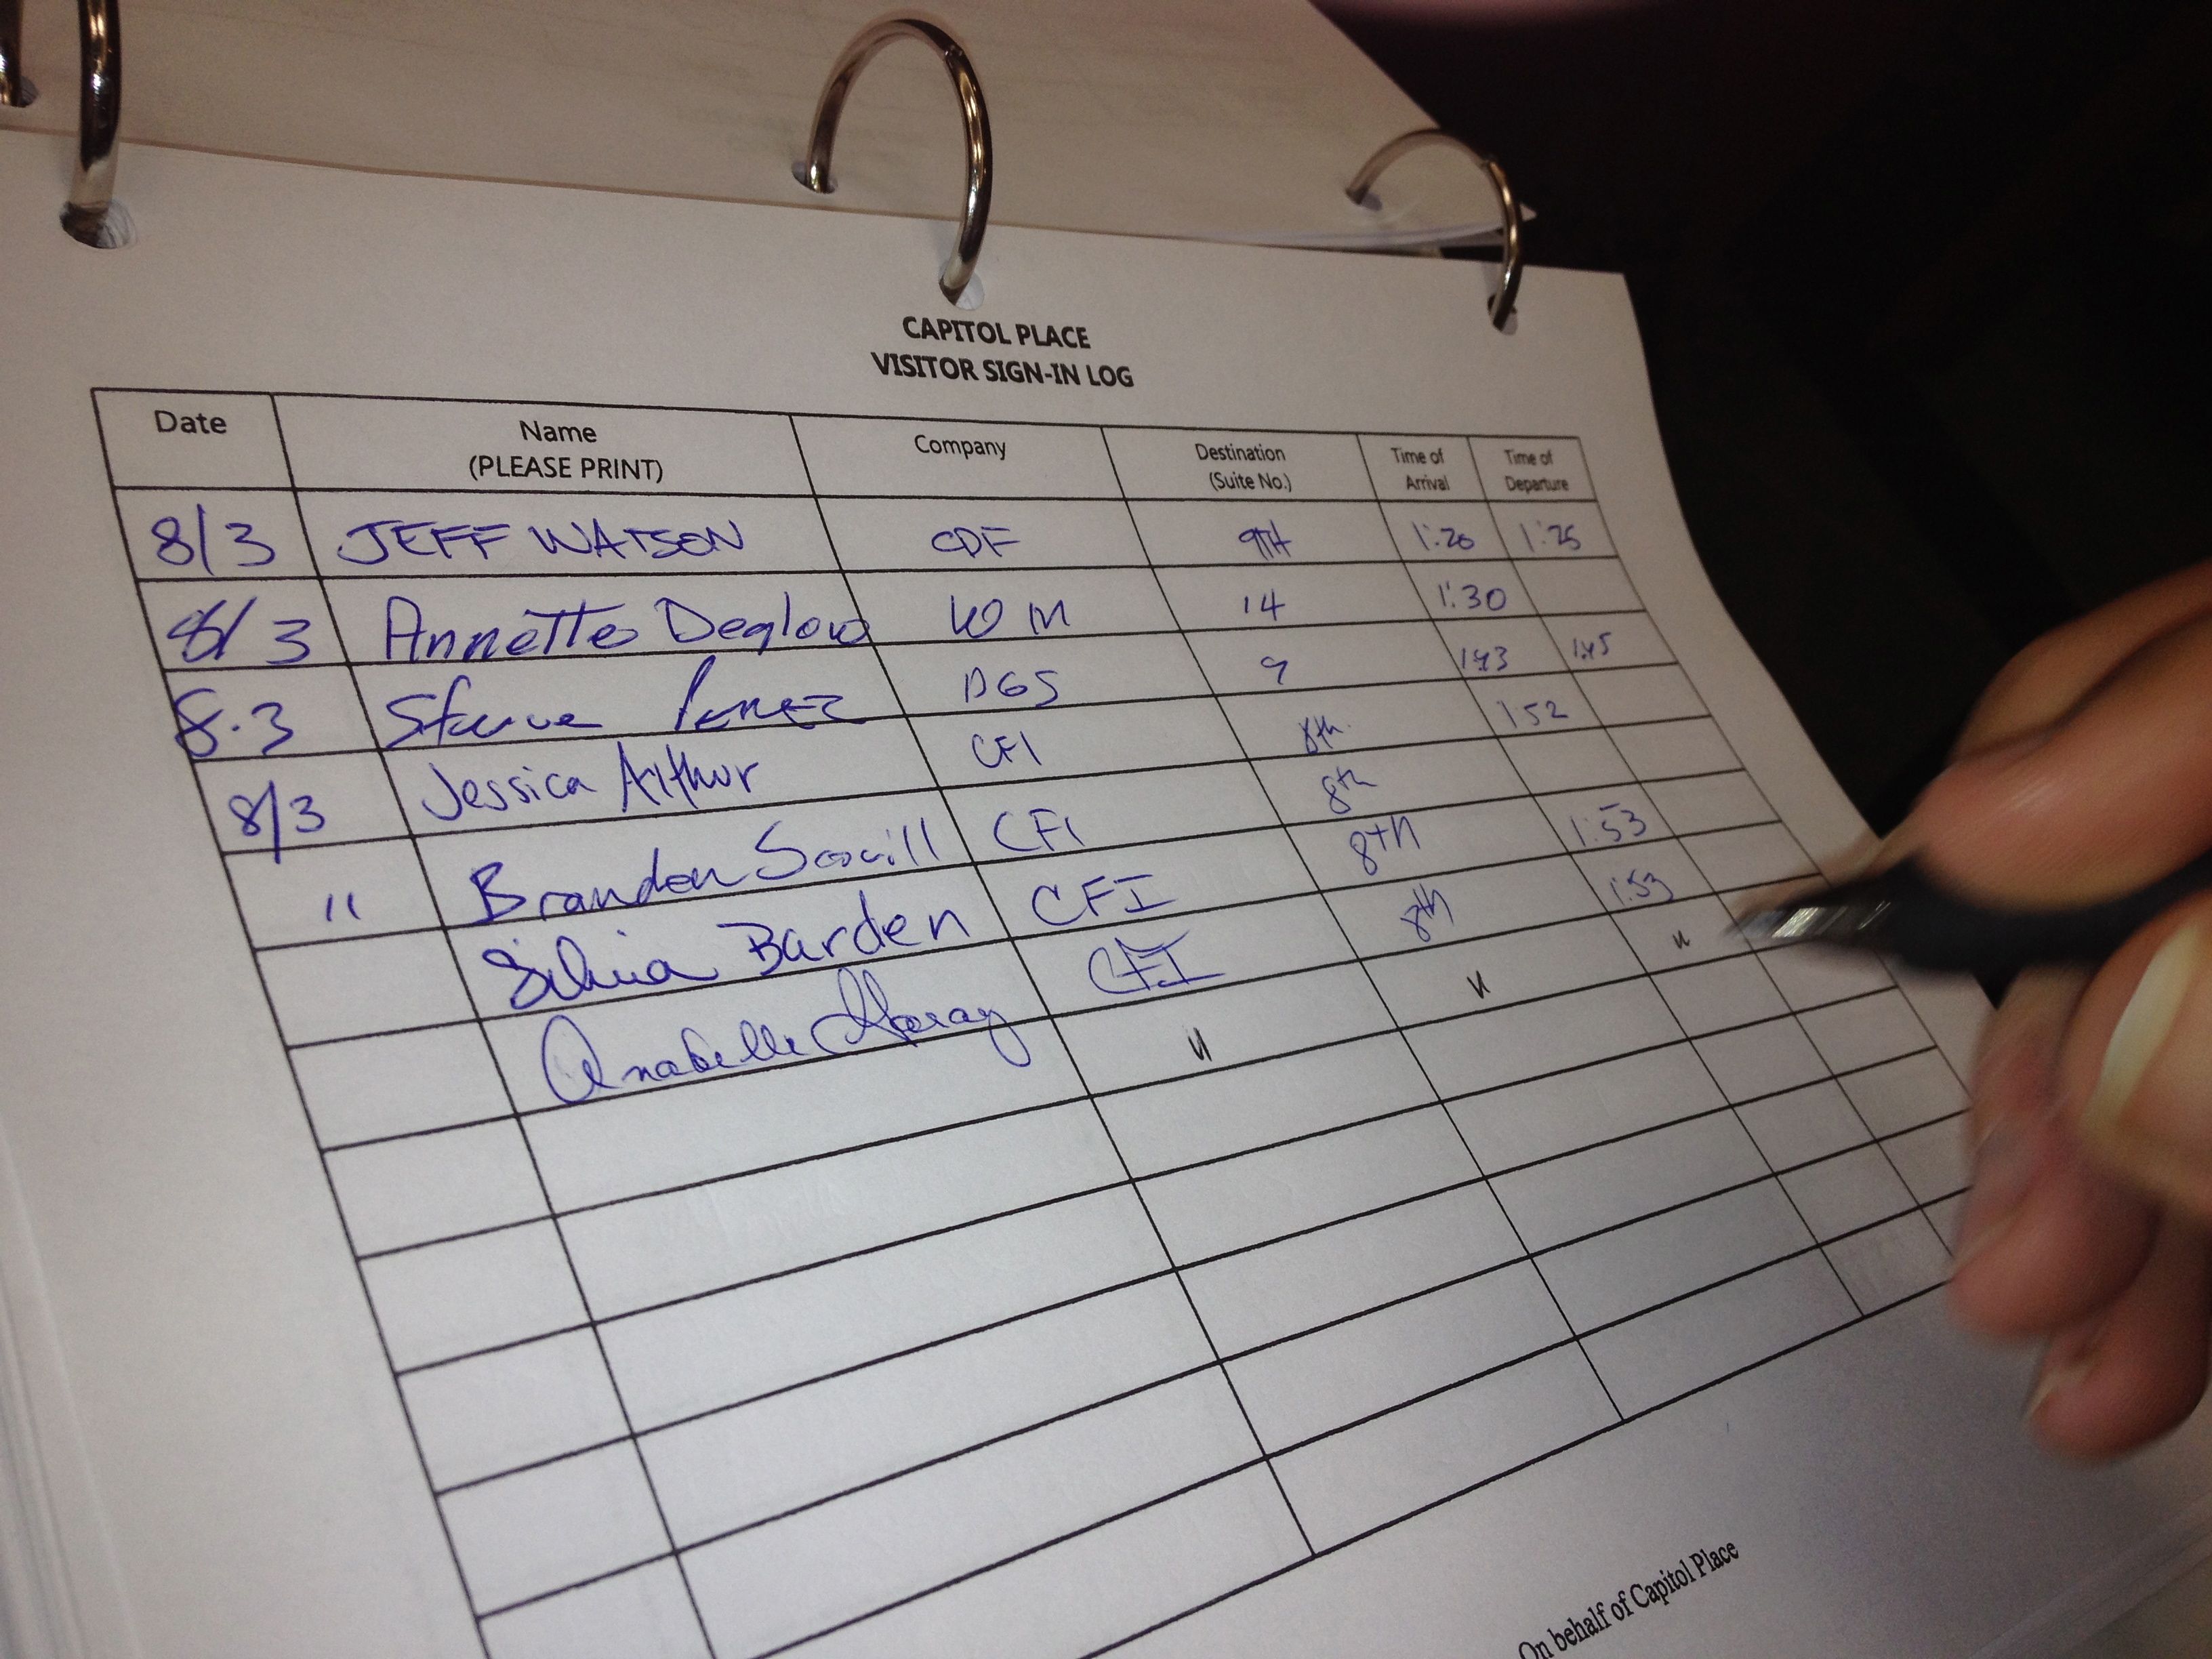 CAPITOL PLACE
VISITOR SIGN-IN LOG
Date Name (PLEASE PRINT) Company Destination (Suite No.) Time of Arrival Time of Departure
8/3 JEFF WATSON CDF 9TH 1:20 1:25
8/3 Annette Deglow WM 14 1:30
8.3 Steve Perez DGS 9 1:43 1:45
8/3 Jessica Arthur CFI 8th 1:52
" Brandon CFI 8th
Silvia Barden CFI 8th 1:53
Anabelle CFI 8th 1:53
" " "
On behalf of Capitol Place